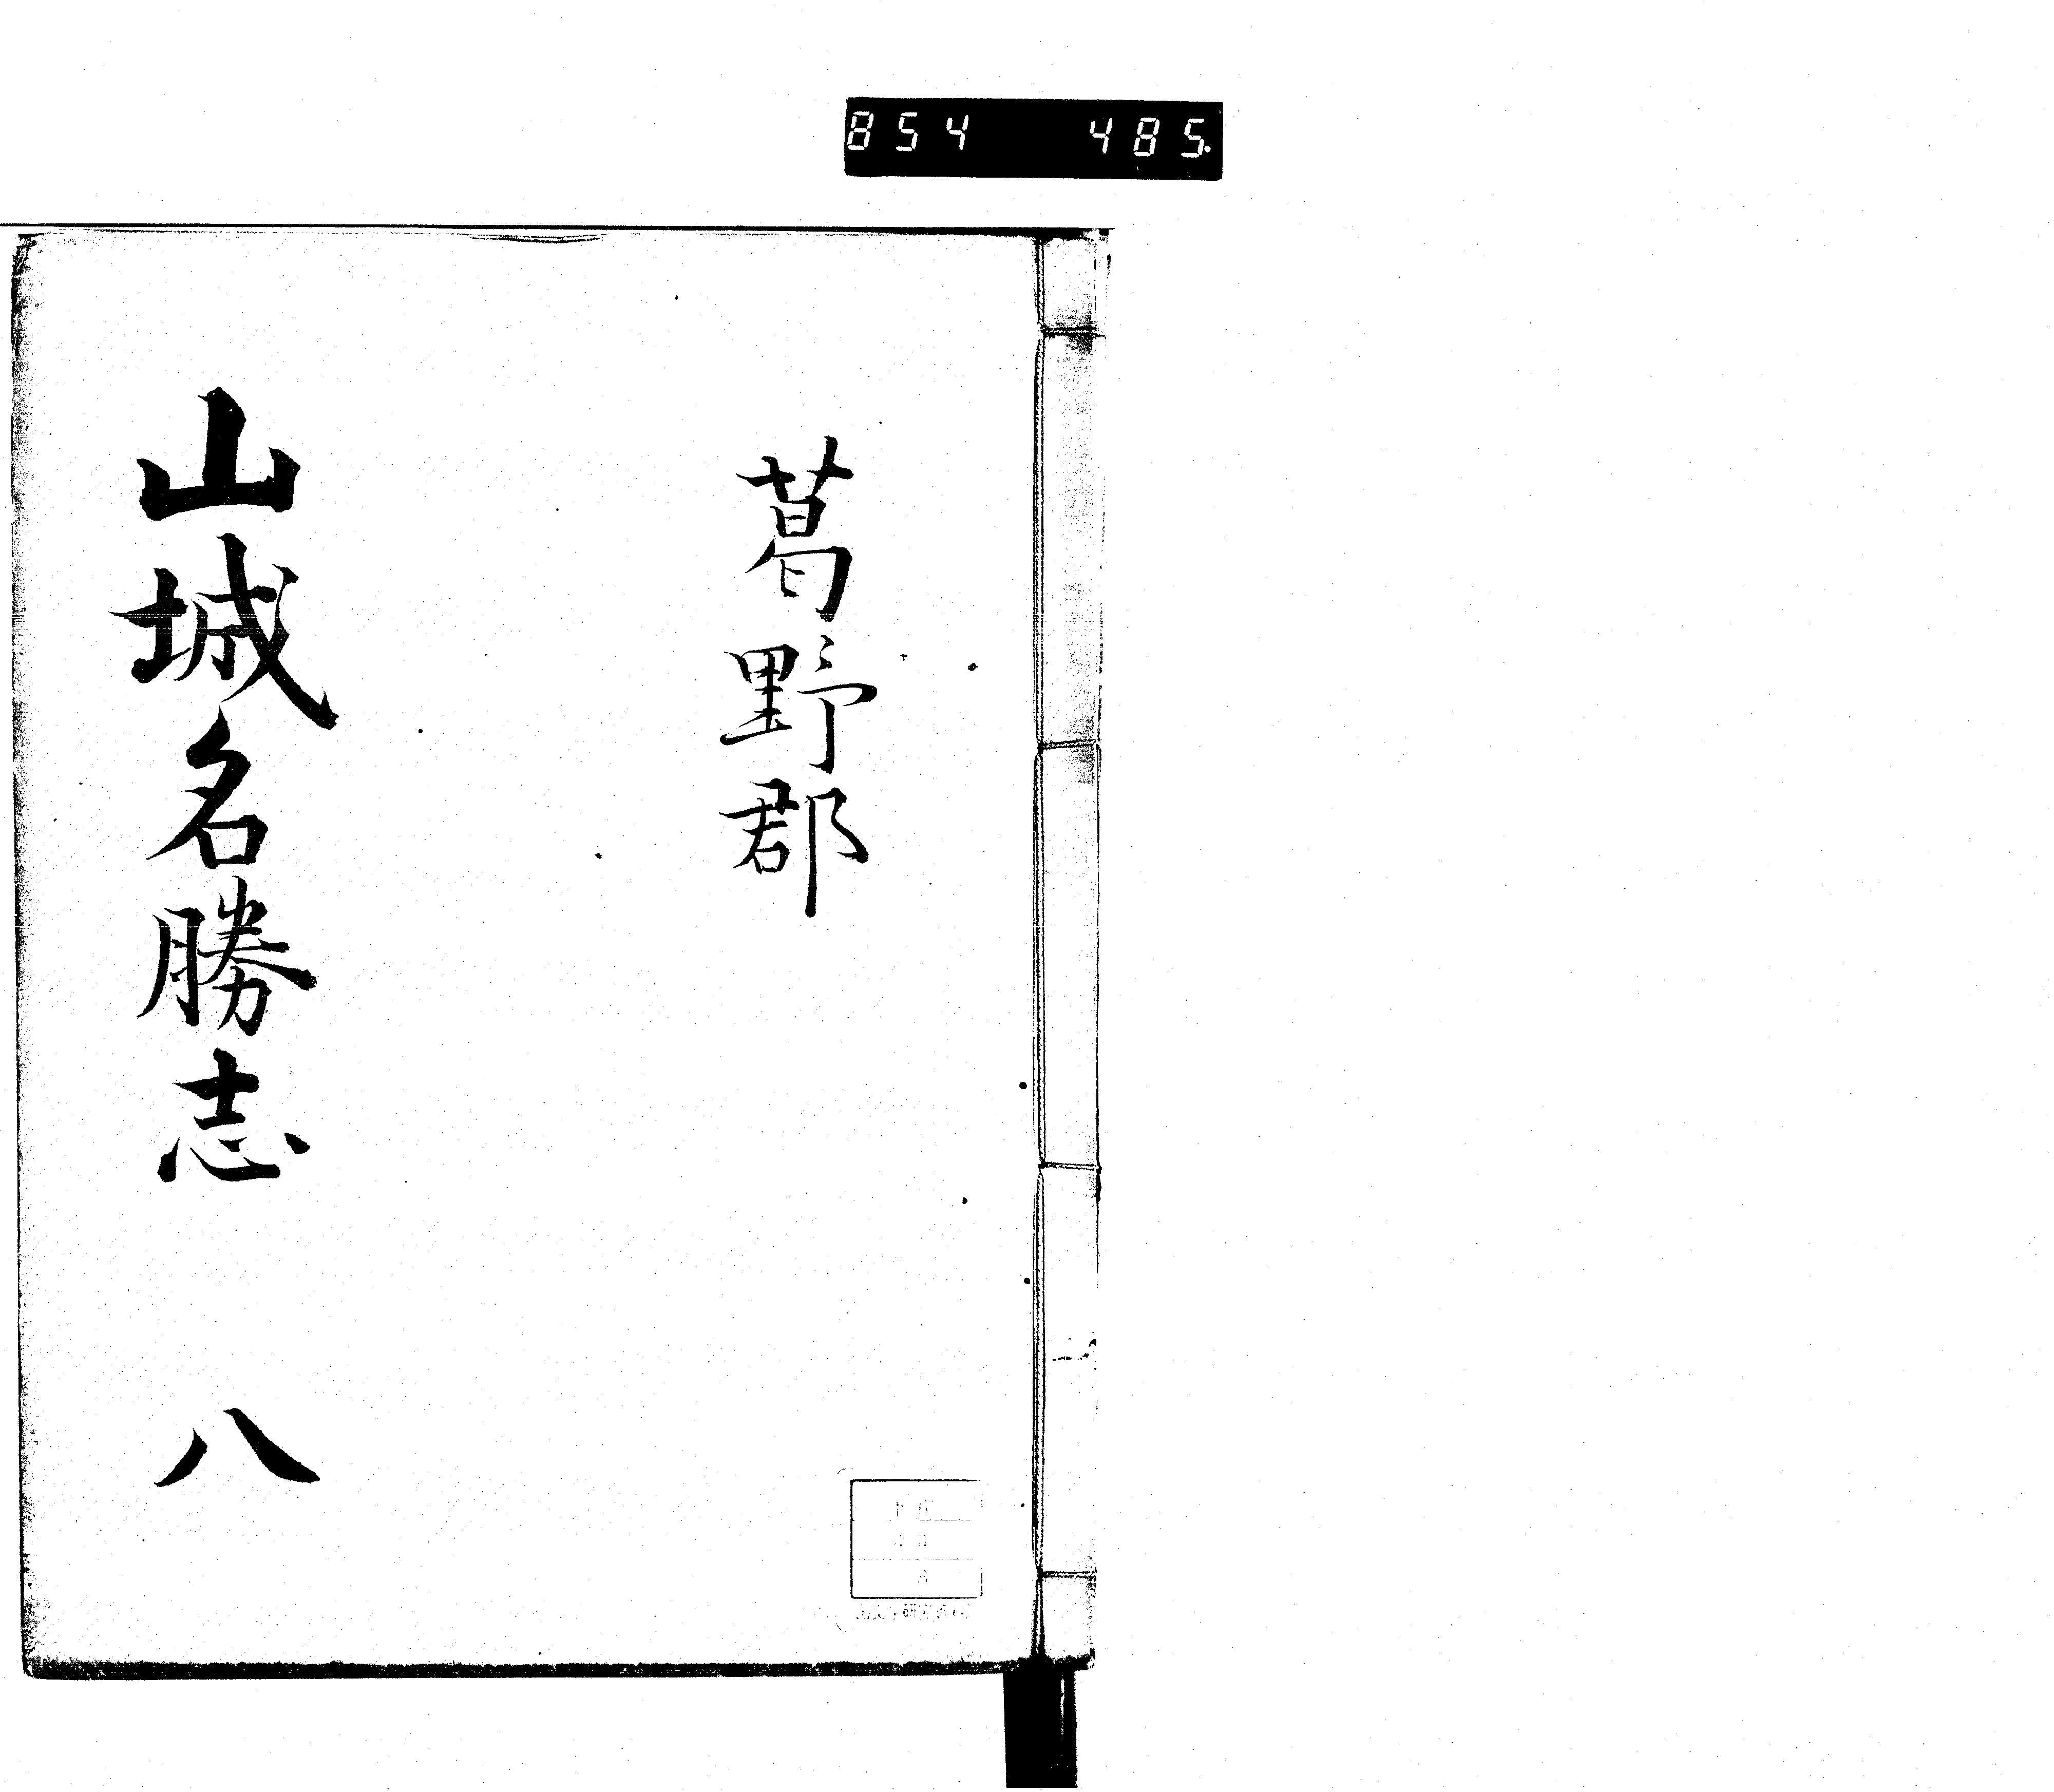 854 485.
葛野郡
山城名勝志 八